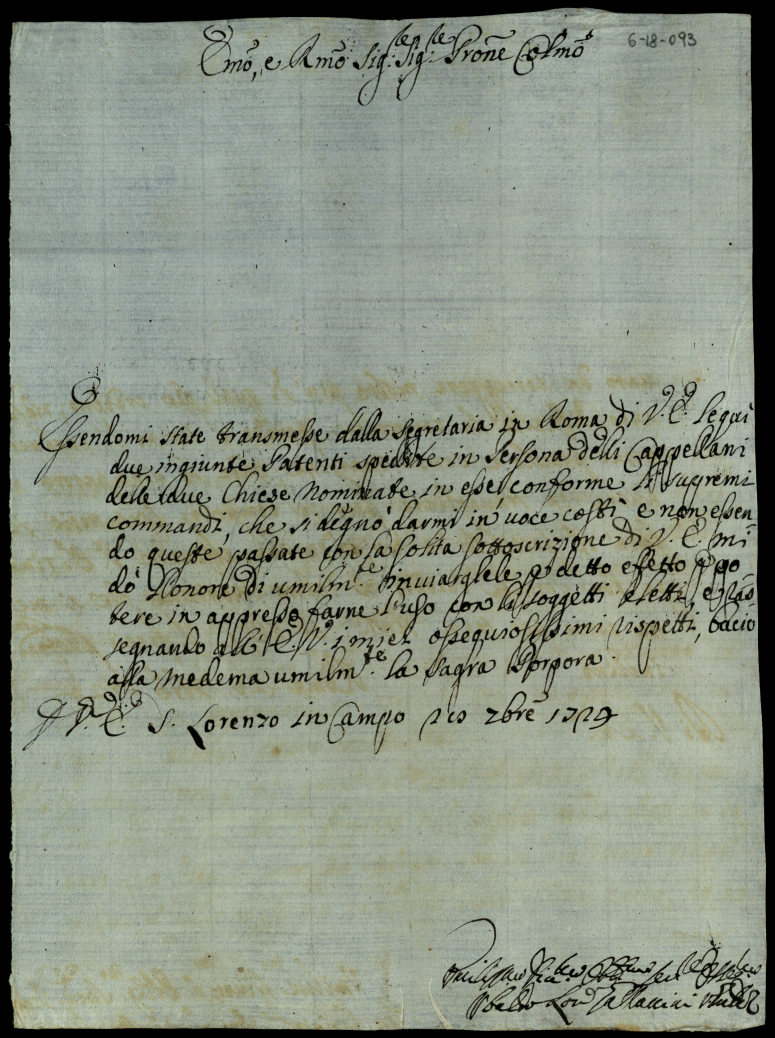 6-18-093
Emo, e Rmo Sig.re Sig.re Prone Colmo
Essendomi state transmesse dalla Segretaria in Roma di V.E. le qui
due ingiunte Patenti spedite in Persona delli Cappellani
delle due Chiese nominate in esse, conforme li supremi
commandi, che si degnò darmi in voce costì, e non essen
do queste passate con la solita sottoscrizione di V.E. mi
dò l'honore di umilm.te inviargliele p detto effetto p po
tere in appresso farne l'uso con li soggetti eletti, e ras
segnando all' E.V. i miei ossequiosissimi rispetti, bacio
alla medema umilm.te la Sagra Porpora.
D V.E. S. Lorenzo in Campo 2co 7bre 1724